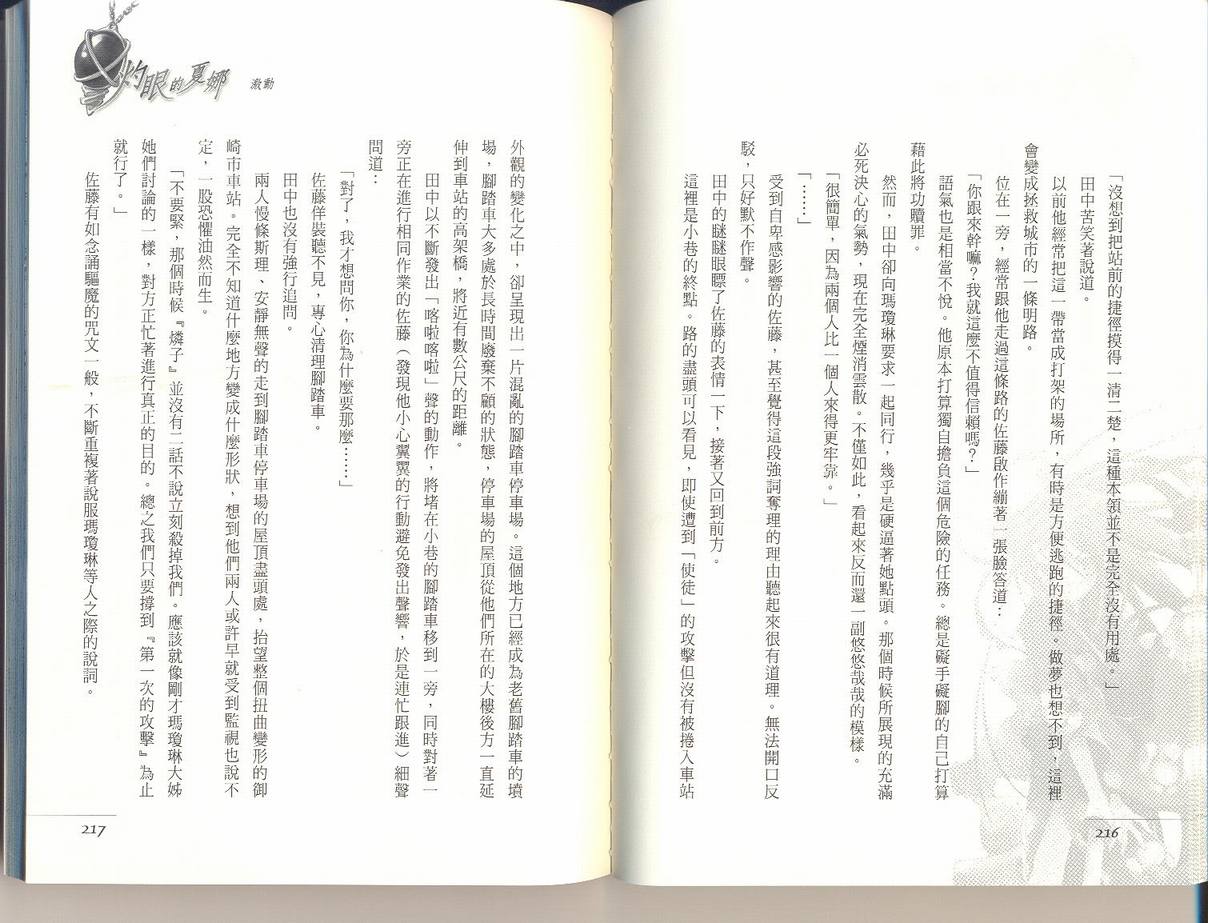 「沒想到把站前的捷徑摸得一清二楚，這種本領並不是完全沒有用處。」
田中苦笑著說道。
以前他經常把這一帶當成打架的場所，有時是方便逃跑的捷徑。做夢也想不到，這裡
會變成拯救城市的一條明路。
位在一旁，經常跟他走過這條路的佐藤啟作繃著一張臉答道：
「你跟來幹嘛？我就這麼不值得信賴嗎？」
語氣也是相當不悅。他原本打算獨自擔負這個危險的任務。總是礙手礙腳的自己打算
藉此將功贖罪。
然而，田中卻向瑪瓊琳要求一起同行，幾乎是硬逼著她點頭。那個時候所展現的充滿
必死決心的氣勢，現在完全煙消雲散。不僅如此，看起來反而還一副悠悠哉哉的模樣。
「很簡單，因為兩個人比一個人來得更牢靠。」
「……」
受到自卑感影響的佐藤，甚至覺得這段強詞奪理的理由聽起來很有道理。無法開口反
駁，只好默不作聲。
田中的瞇瞇眼瞟了佐藤的表情一下，接著又回到前方。
這裡是小巷的終點。路的盡頭可以看見，即使遭到「使徒」的攻擊但沒有被捲入車站
216
灼眼的夏娜
激動
外觀的變化之中，卻呈現出一片混亂的腳踏車停車場。這個地方已經成為老舊腳踏車的墳
場，腳踏車大多處於長時間廢棄不顧的狀態，停車場的屋頂從他們所在的大樓後方一直延
伸到車站的高架橋，將近有數公尺的距離。
田中以不斷發出「喀啦喀啦」聲的動作，將堵在小巷的腳踏車移到一旁，同時對著一
旁正在進行相同作業的佐藤（發現他小心翼翼的行動避免發出聲響，於是連忙跟進）細聲
問道：
「對了，我才想問你，你為什麼要那麼……」
佐藤佯裝聽不見，專心清理腳踏車。
田中也沒有強行追問。
兩人慢條斯理、安靜無聲的走到腳踏車停車場的屋頂盡頭處，抬望整個扭曲變形的御
崎市車站。完全不知道什麼地方變成什麼形狀，想到他們兩人或許早就受到監視也說不
定，一股恐懼油然而生。
「不要緊，那個時候『燐子』並沒有二話不說立刻殺掉我們。應該就像剛才瑪瓊琳大姊
她們討論的一樣，對方正忙著進行真正的目的。總之我們只要撐到『第一次的攻擊』為止
就行了。」
佐藤有如念誦驅魔的咒文一般，不斷重複著說服瑪瓊琳等人之際的說詞。
217